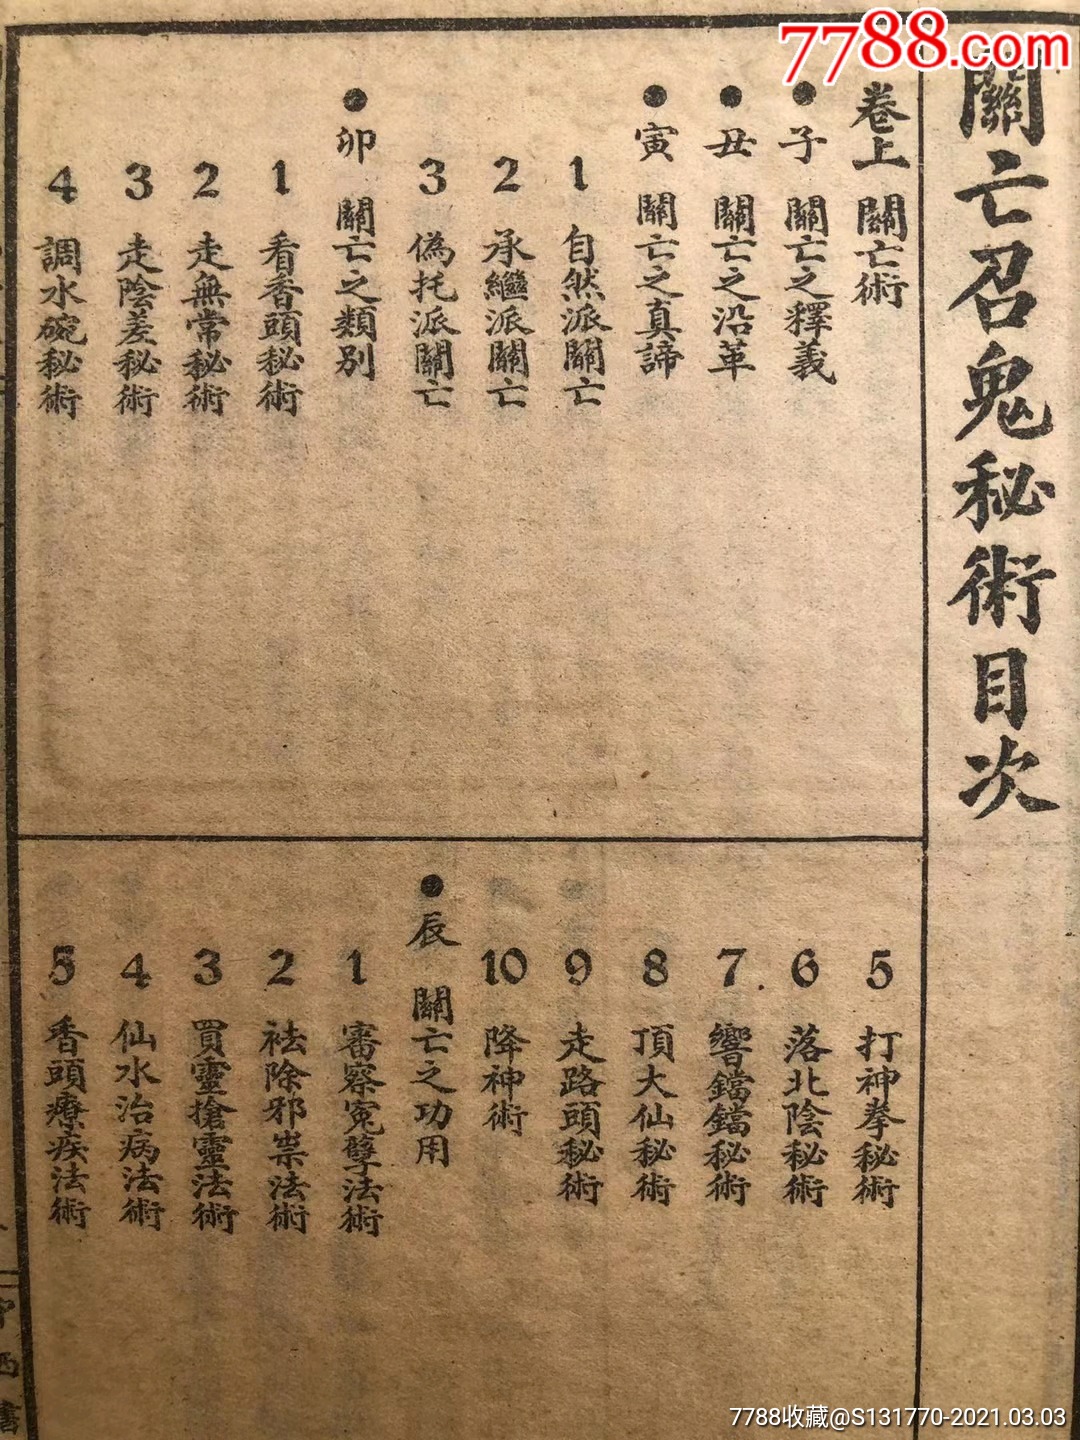 7788.com
關亡召鬼秘術目次
卷上 關亡術
●子 關亡之釋義
●丑 關亡之沿革
●寅 關亡之真諦
1 自然派關亡
2 承繼派關亡
3 偽托派關亡
●卯 關亡之類別
1 看香頭秘術
2 走無常秘術
3 走陰差秘術
4 調水碗秘術
5 打神拳秘術
6 落北陰秘術
7 響鐺鐺秘術
8 頂大仙秘術
9 走路頭秘術
10 降神術
●辰 關亡之功用
1 審察冤孽法術
2 袪除邪祟法術
3 買靈搶靈法術
4 仙水治病法術
5 香頭療疾法術
西書
7788收藏@S131770-2021.03.03